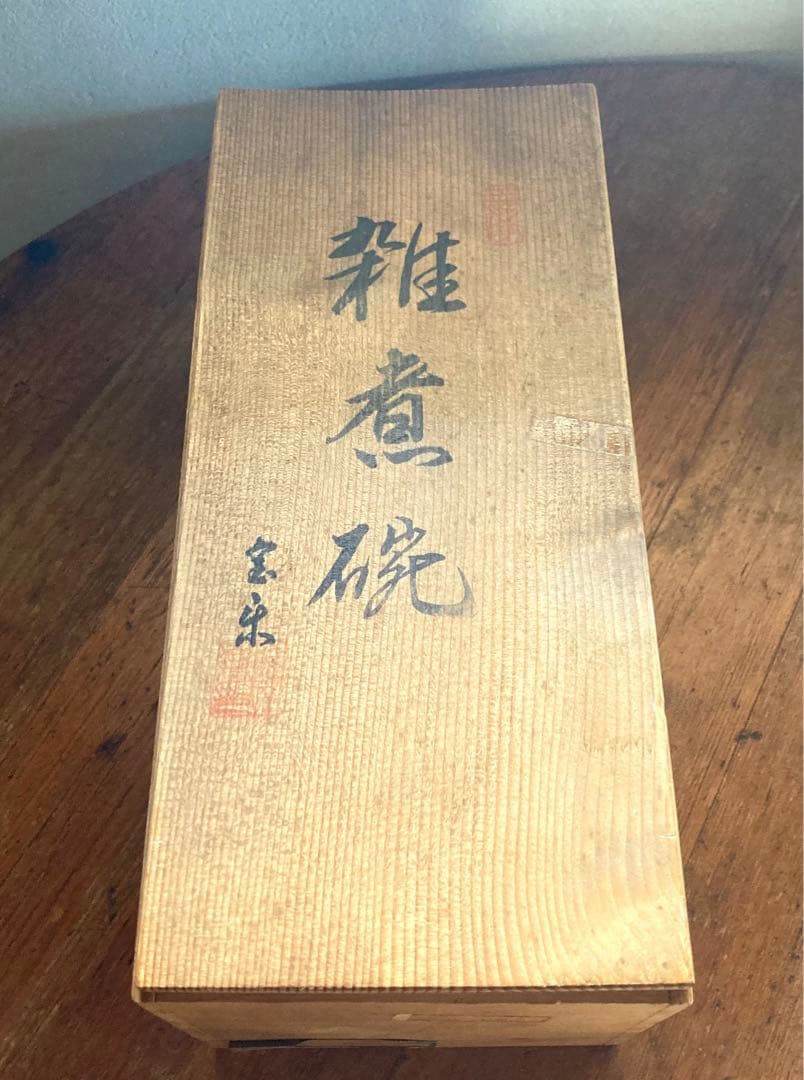 雑煮碗
宝楽